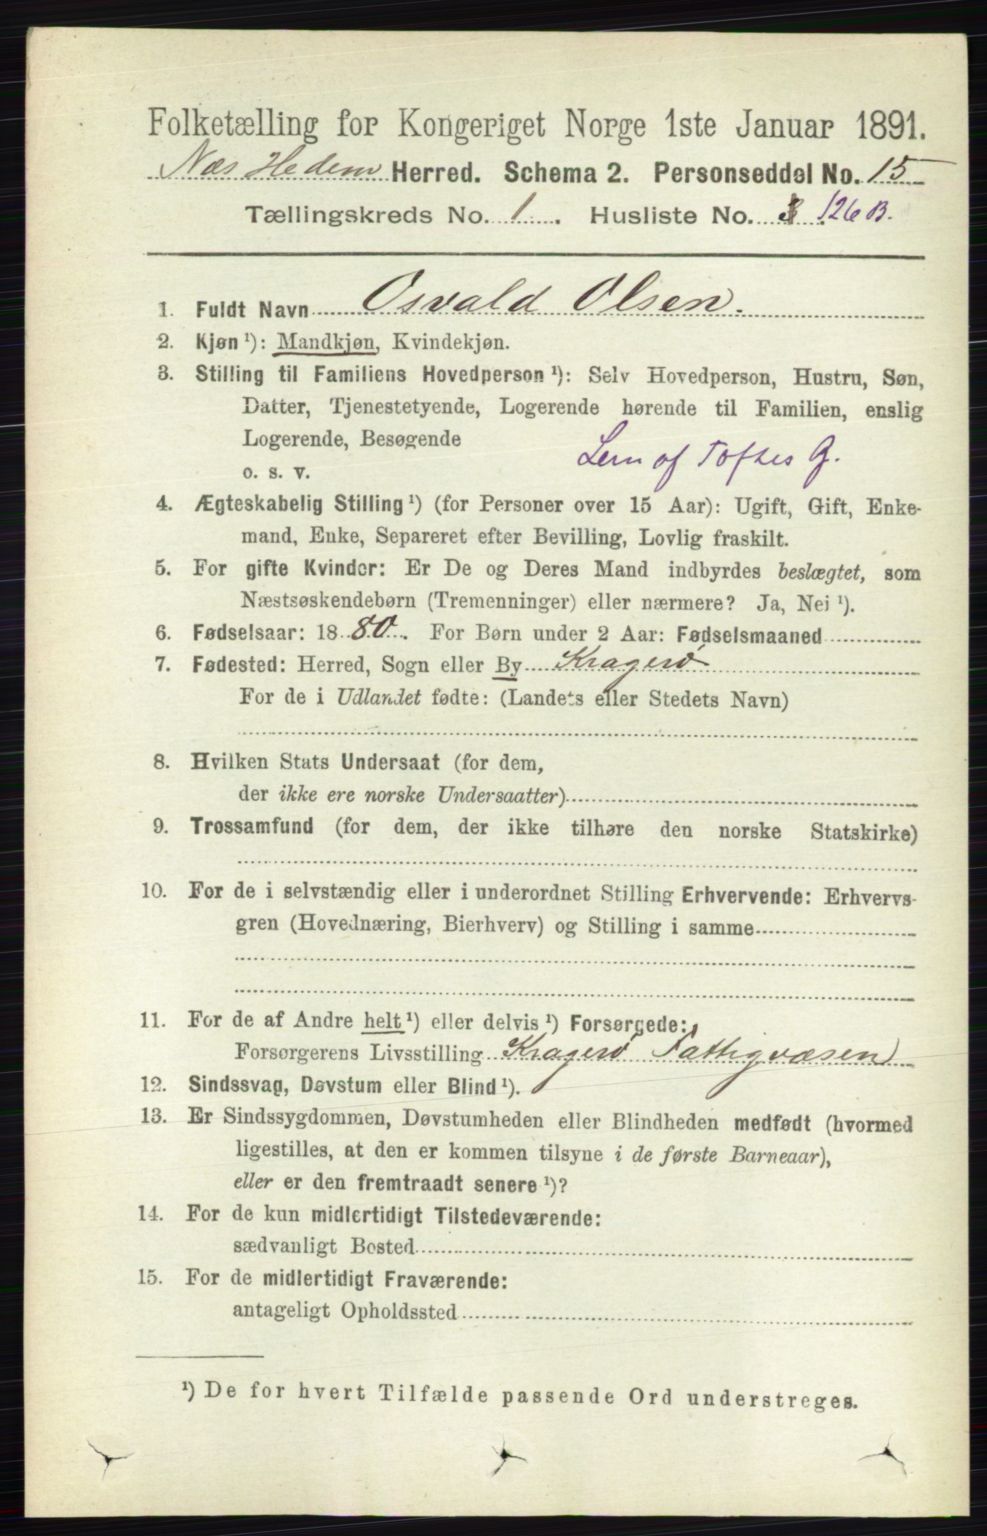 Folketælling for Kongeriget Norge 1ste Januar 1891.
Næs Hedem Herred. Schema 2. Personseddel No. 15
Tællingskreds No. 1. Husliste No. 3 126 B.
1. Fuldt Navn Osvald Olsen.
2. Kjøn ¹): Mandkjøn, Kvindekjøn.
3. Stilling til Familiens Hovedperson ¹): Selv Hovedperson, Hustru, Søn,
Datter, Tjenestetyende, Logerende hørende til Familien, enslig
Logerende, Besøgende
o. s. v. Lem af Toftes G.
4. Ægteskabelig Stilling ¹) (for Personer over 15 Aar): Ugift, Gift, Enke-
mand, Enke, Separeret efter Bevilling, Lovlig fraskilt.
5. For gifte Kvinder: Er De og Deres Mand indbyrdes beslægtet, som
Næstsøskendebørn (Tremenninger) eller nærmere? Ja, Nei ¹).
6. Fødselsaar: 1880. For Børn under 2 Aar: Fødselsmaaned
7. Fødested: Herred, Sogn eller By Kragerø
For de i Udlandet fødte: (Landets eller Stedets Navn)
8. Hvilken Stats Undersaat (for dem,
der ikke ere norske Undersaatter)
9. Trossamfund (for dem, der ikke tilhøre den norske Statskirke)
10. For de i selvstændig eller i underordnet Stilling Erhvervende: Erhvervs-
gren (Hovednæring, Bierhverv) og Stilling i samme
11. For de af Andre helt ¹) eller delvis ¹) Forsørgede:
Forsørgerens Livsstilling Kragerø Fattigvæsen
12. Sindssvag, Døvstum eller Blind ¹).
13. Er Sindssygdommen, Døvstumheden eller Blindheden medfødt (hvormed
ligestilles, at den er kommen tilsyne i de første Barneaar),
eller er den fremtraadt senere ¹)?
14. For de kun midlertidigt Tilstedeværende:
sædvanligt Bosted
15. For de midlertidigt Fraværende:
antageligt Opholdssted
¹) De for hvert Tilfælde passende Ord understreges.